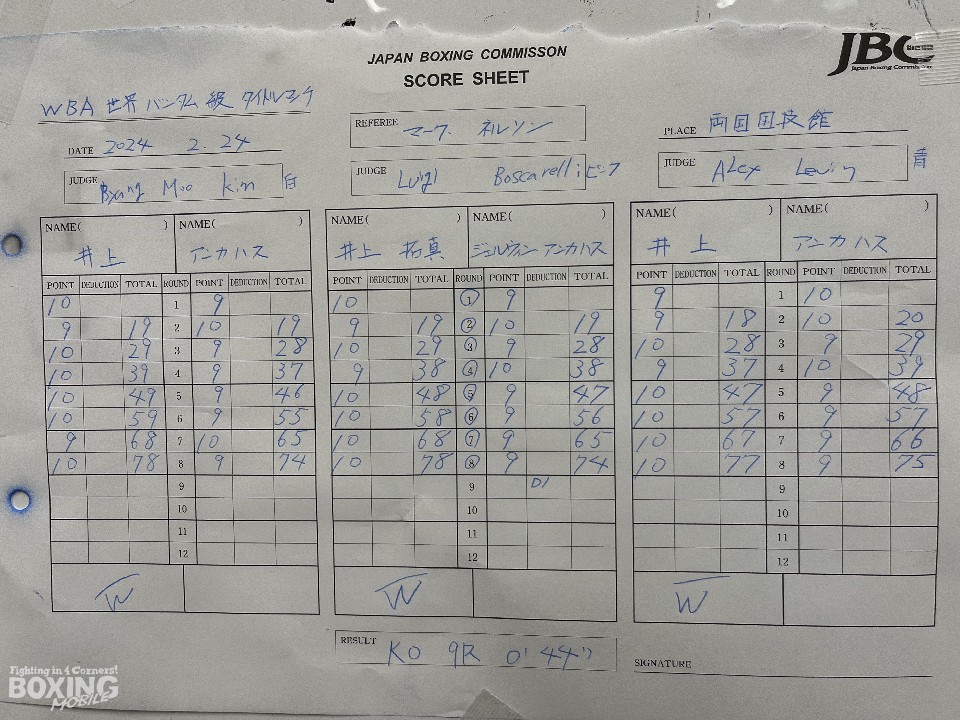 JBC
Japan Boxing Commission
JAPAN BOXING COMMISSON
SCORE SHEET
WBA 世界 バンタム 級 タイトルマッチ
DATE 2024 2.24
REFEREE マーク ネルソン
PLACE 両国国技館
JUDGE Moo Kim 白
JUDGE Luigi Boscarelli
JUDGE ALex Levin 青
NAME( ) NAME( )
井上 アンカハス
POINT DEDUCTION TOTAL ROUND POINT DEDUCTION TOTAL
10 1 9
9 19 2 10 19
10 29 3 9 28
10 39 4 9 37
10 49 5 9 46
10 59 6 9 55
9 68 7 10 65
10 78 8 9 74
9
10
11
12
W
NAME( ) NAME( )
井上 拓真 ジェルウィン アンカハス
POINT DEDUCTION TOTAL ROUND POINT DEDUCTION TOTAL
10 1 9
9 19 2 10 19
10 29 3 9 28
9 38 4 10 38
10 48 5 9 47
10 58 6 9 56
10 68 7 9 65
10 78 8 9 74
9 D1
10
11
12
W
NAME( ) NAME( )
井上 アンカハス
POINT DEDUCTION TOTAL ROUND POINT DEDUCTION TOTAL
9 1 10
9 18 2 10 20
10 28 3 9 29
9 37 4 10 39
10 47 5 9 48
10 57 6 9 57
10 67 7 9 66
10 77 8 9 75
9
10
11
12
W
RESULT KO 9R 0'44"
SIGNATURE
Fighting in 4 Corners!
BOXING
MOBILE